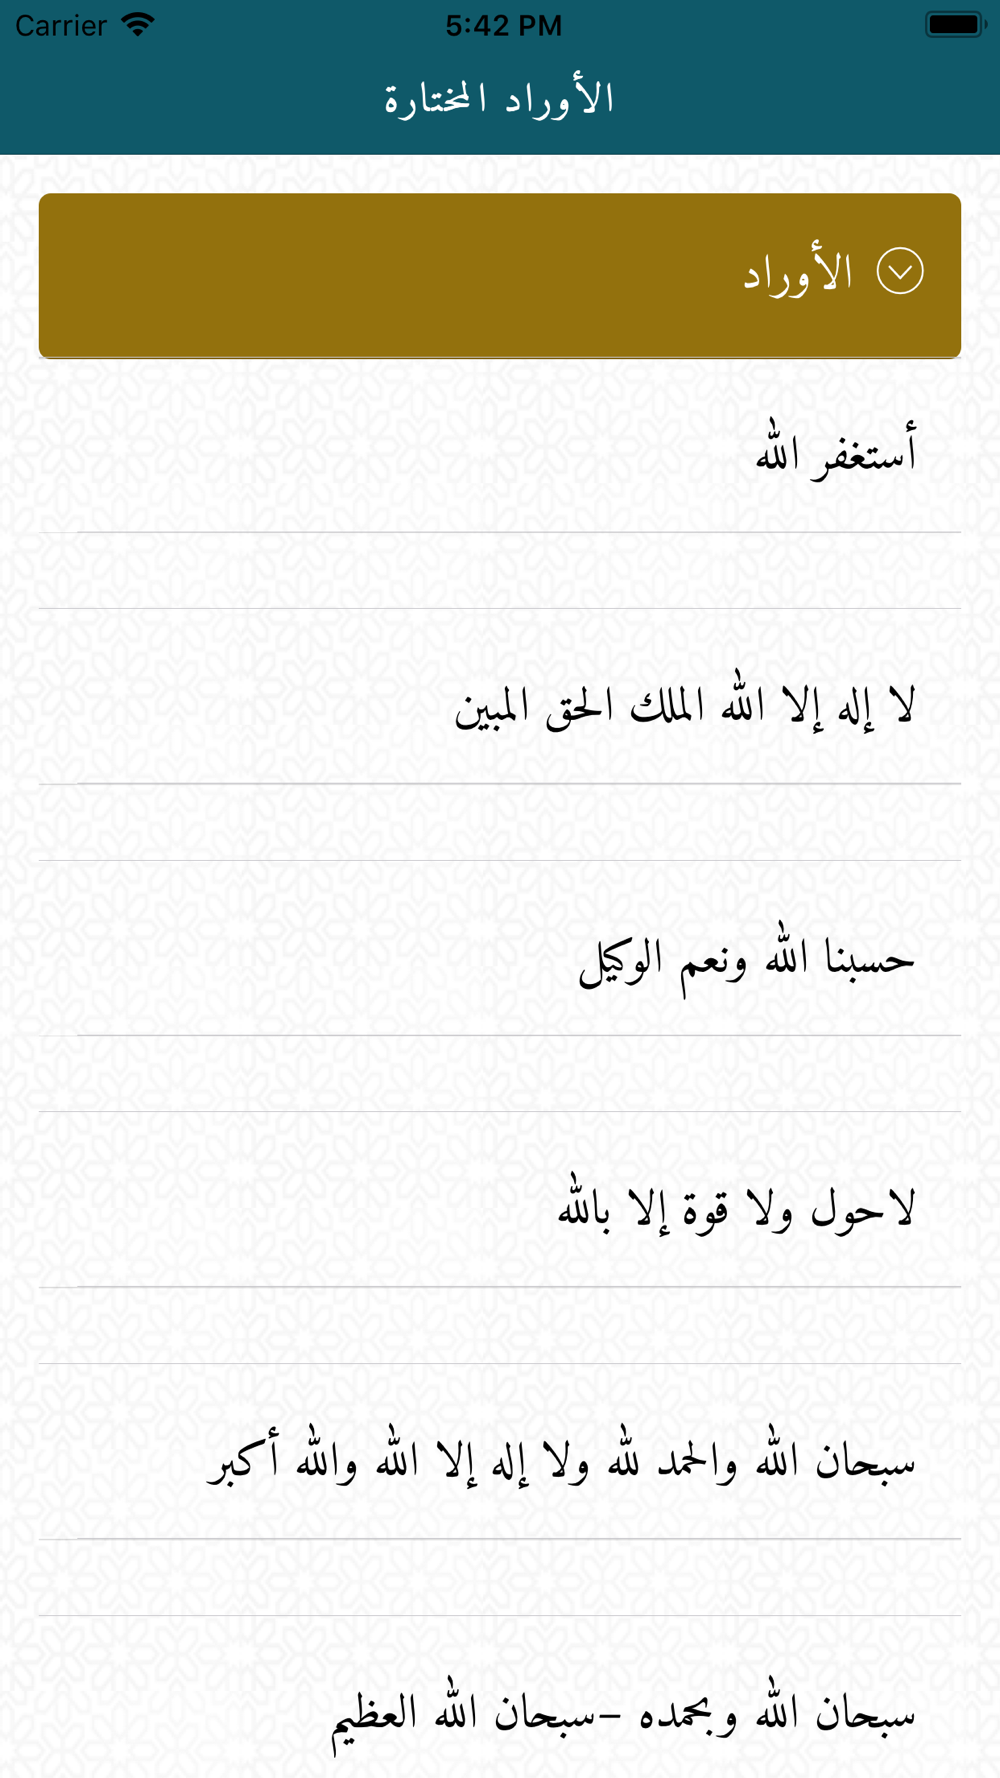 Carrier 5:42 PM
الأوراد المختارة
الأوراد
أستغفر الله
لا إله إلا الله الملك الحق المبين
حسبنا الله ونعم الوكيل
لاحول ولا قوة إلا بالله
سبحان الله والحمد لله ولا إله إلا الله والله أكبر
سبحان الله وبحمده -سبحان الله العظيم